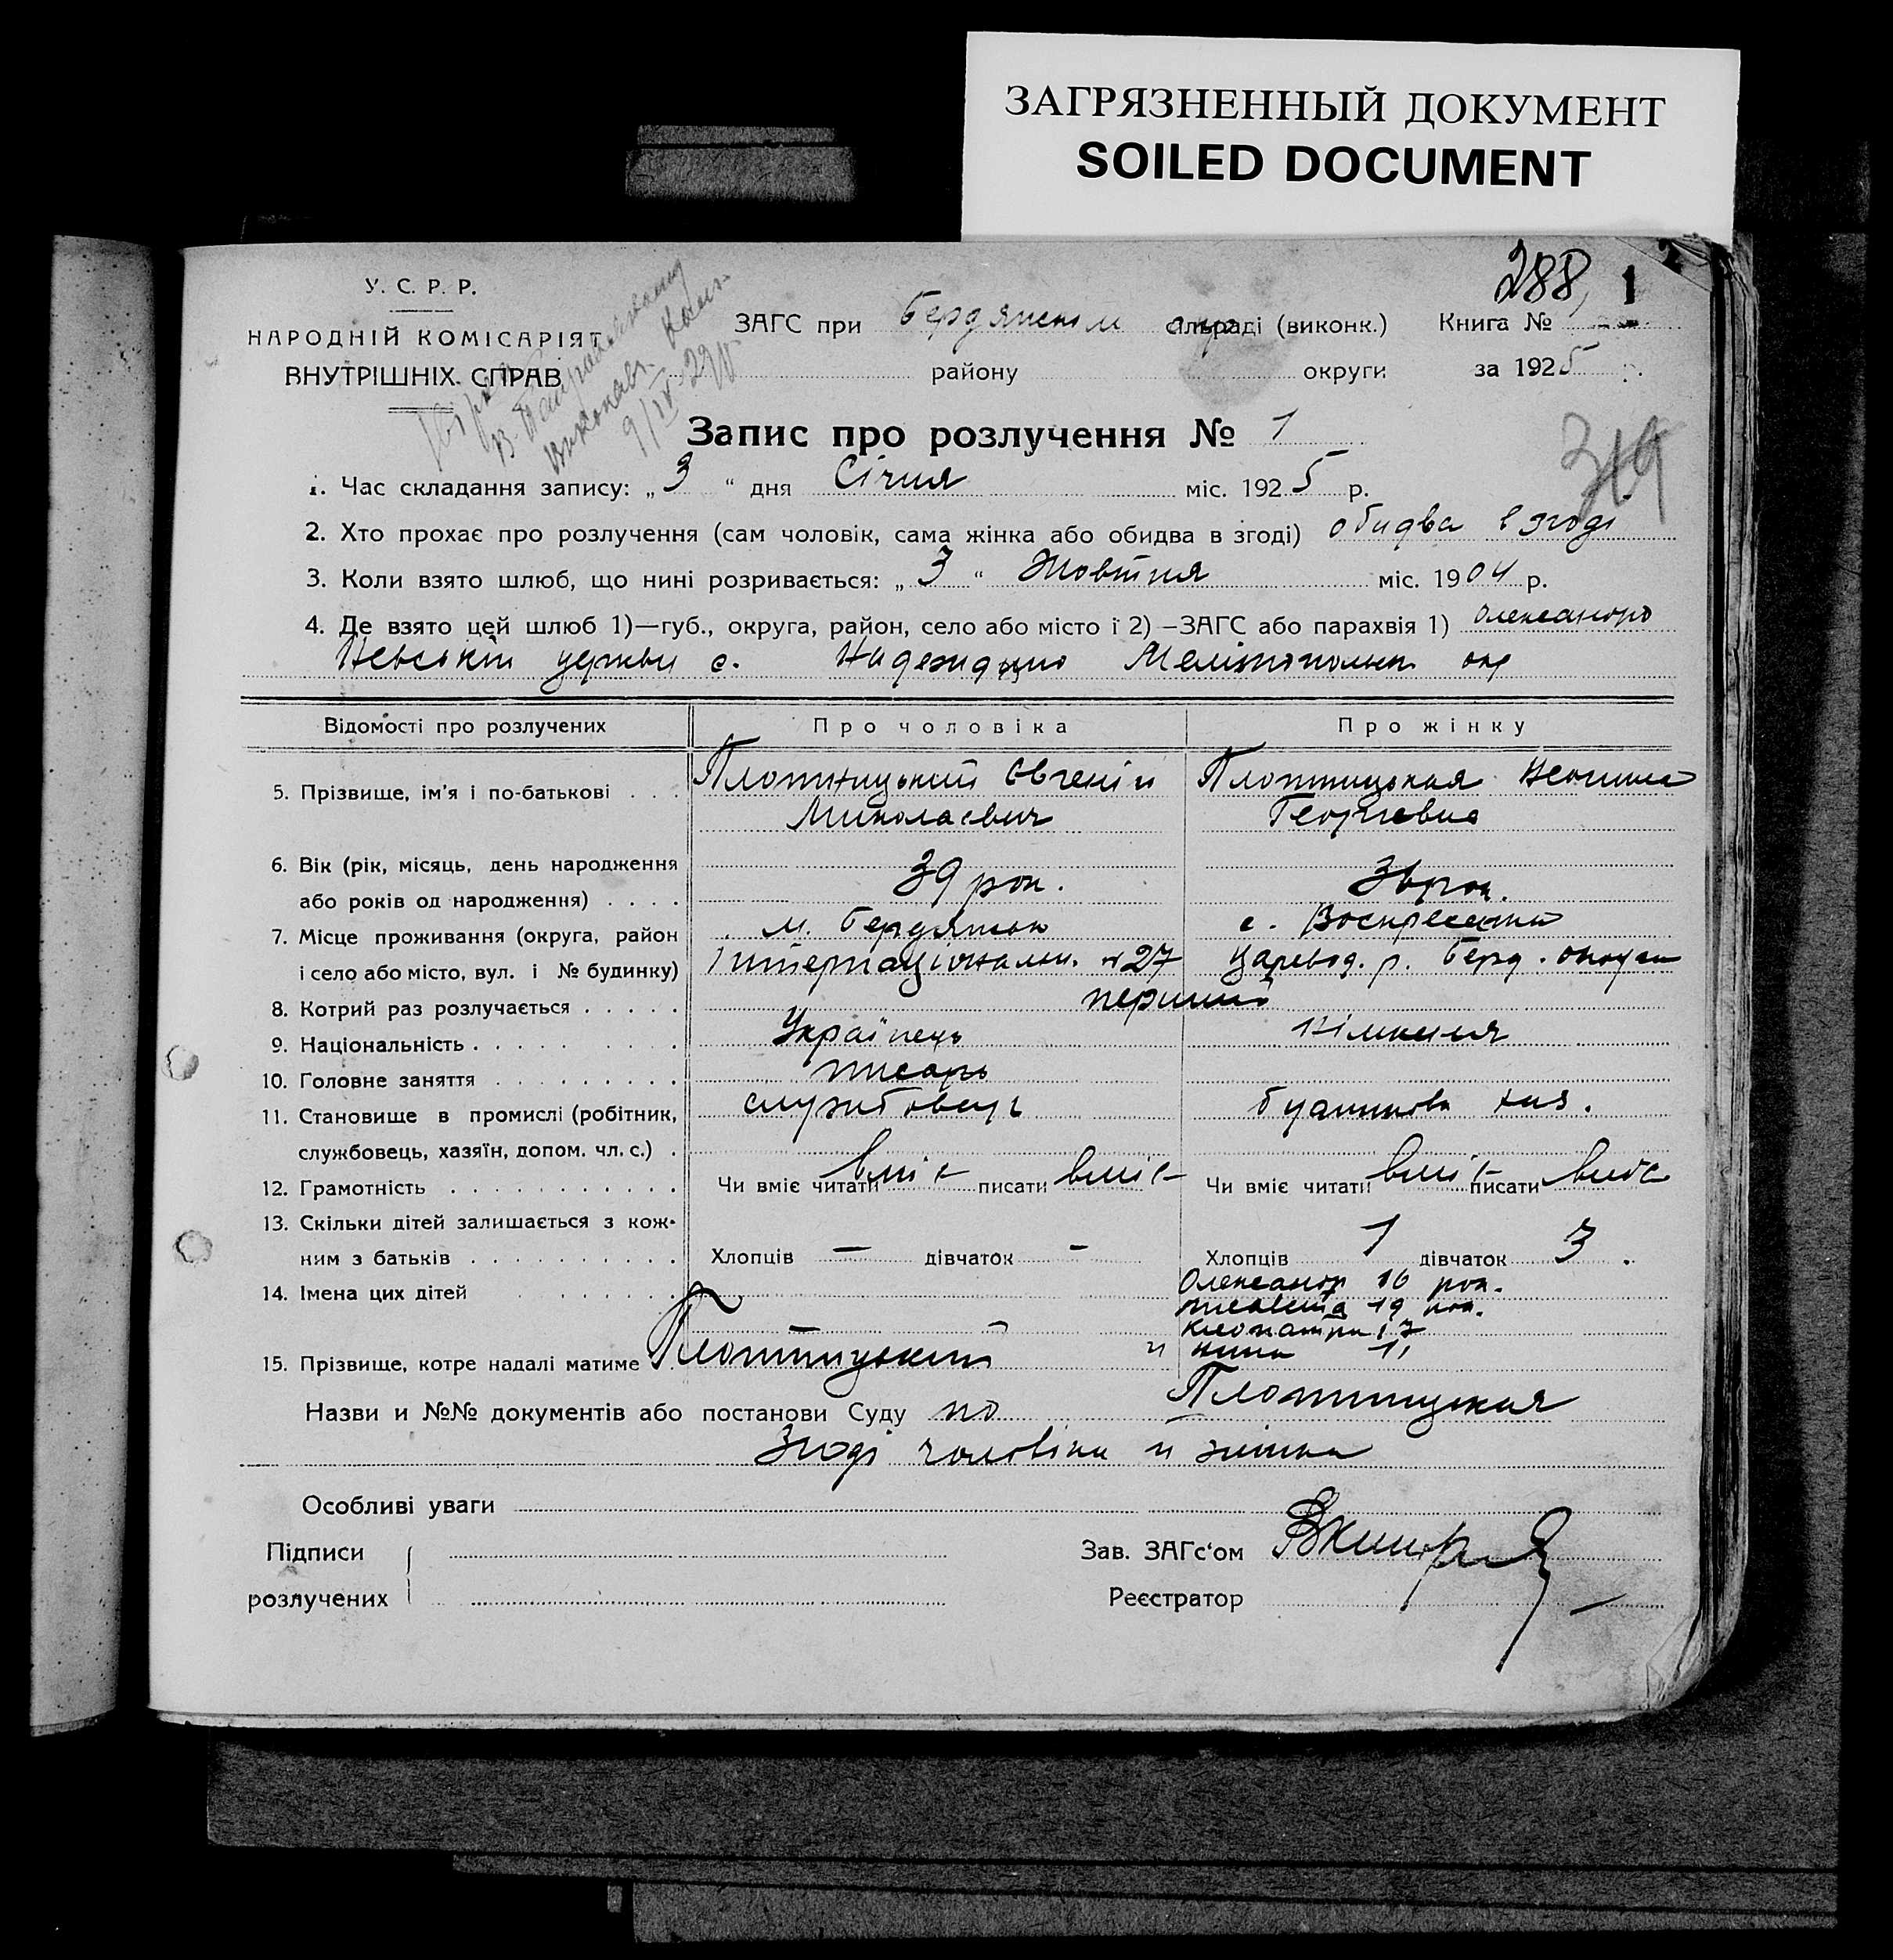 ЗАГРЯЗНЕННЫЙ ДОКУМЕНТ
SOILED DOCUMENT
288 1 2
У. С. Р. Р.
НАРОДНІЙ КОМІСАРІЯТ
ВНУТРІШНІХ СПРАВ
9/IV-29
ЗАГС при Бердянском окр сільраді (виконк.) Книга №
району округи за 1925 р.
Запис про розлучення № 1
319
1. Час складання запису: „3“ дня Січня міс. 1925 р.
2. Хто прохає про розлучення (сам чоловік, сама жінка або обидва в згоді) обидва в згоді
3. Коли взято шлюб, що нині розривається: „3“ Жовтня міс. 1904 р.
4. Де взято цей шлюб 1)—губ., округа, район, село або місто і 2)—ЗАГС або парахвія 1) Олександро
Невській церкви с. Мелітопольск окр
Відомості про розлучених Про чоловіка Про жінку
5. Прізвище, ім'я і по-батькові . . . Плотницький Євгеній Плотницькая
Миколаєвич Георгіевна
6. Вік (рік, місяць, день народження
або років од народження) . . . . 39 рок. 36 рок.
7. Місце проживання (округа, район м. Бердянськ с. Воскресенка
і село або місто, вул. і № будинку) Інтернаціональн. № 27 Царевод. р. Берд. округи
8. Котрий раз розлучається . . . . . перший
9. Національність . . . . . . . Українець Німкиня
10. Головне заняття . . . . . . . . . писарь
11. Становище в промислі (робітник, службовець
службовець, хазяїн, допом. чл. с.) .
12. Грамотність . . . . . . . . . . . Чи вміє читати вміє писати вміє Чи вміє читати вміє писати вміє
13. Скільки дітей залишається з кож-
ним з батьків . . . . . . . . . . Хлопців — дівчаток - Хлопців 1 дівчаток 3
14. Імена цих дітей . . . . . . Олександр 16 рок.
19 рок.
Клеопатра 17
и нина 11
15. Прізвище, котре надалі матиме Плотницький
Плотницкая
Назви и №№ документів або постанови Суду по
згоді чоловіка и жінки
Особливі уваги
Підписи
розлучених
Зав. ЗАГс'ом
Реєстратор —